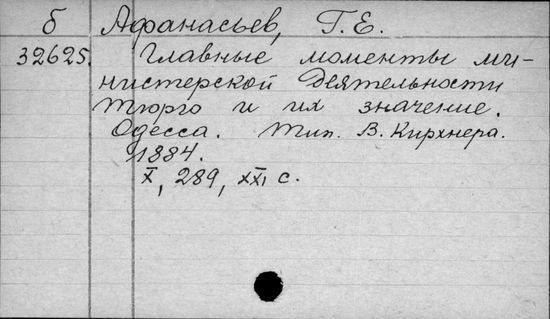 б Афанасьев, Г. Е.
32625. Главные моменты ми-
нистерской деятельности
Тюрго и их значение.
Одесса. Тип. В. Кирхнера.
1884.
X, 289, XXI с.